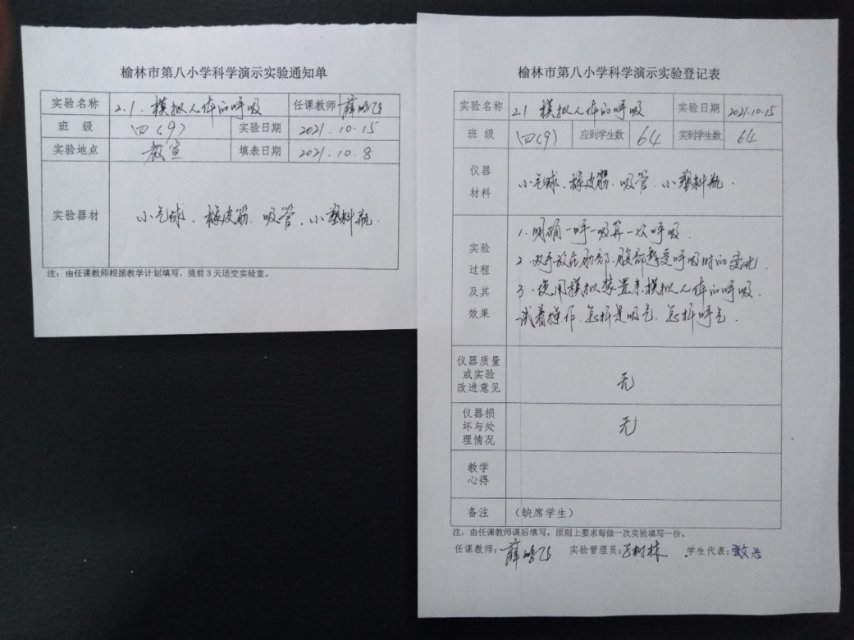 榆林市第八小学科学演示实验通知单
实验名称 2.1.模拟人体的呼吸 任课教师
班 级 四(9) 实验日期 2021.10.15
实验地点 教室 填表日期 2021.10.8
实验器材 小气球、橡皮筋、吸管、小塑料瓶.
注：由任课教师根据教学计划填写，提前3天送交实验室。
榆林市第八小学科学演示实验登记表
实验名称 2.1 模拟人体的呼吸 实验日期 2021.10.15
班 级 四(9) 应到学生数 64 实到学生数 64
仪器
材料
小气球、橡皮筋、吸管、小塑料瓶.
实验
过程
及其
效果
1.明确一呼一吸算一次呼吸.
2.双手放在肋部、腹部感受呼吸时的变化.
3.使用模拟装置来模拟人体的呼吸.
试着操作、怎样是吸气、怎样呼气.
仪器质量
或实验
改进意见
无
仪器损
坏与处
理情况
无
教学
心得
备注 (缺席学生)
注：由任课教师课后填写，原则上要求每做一次实验填写一份。
任课教师: 实验管理员: 学生代表: